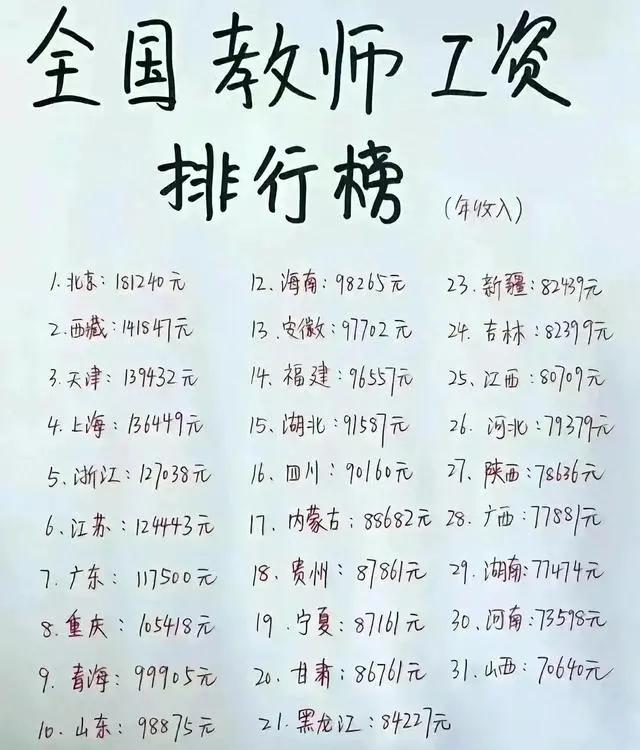 全国教师工资
排行榜 (年收入)
1.北京：181240元
2.西藏：141847元
3.天津：139432元
4.上海：136449元
5.浙江：127038元
6.江苏：124443元
7.广东：117500元
8.重庆：105418元
9.青海：99905元
10.山东：98875元
12.海南：98265元
13.安徽：97702元
14.福建：96557元
15.湖北：91587元
16.四川：90160元
17.内蒙古：88682元
18.贵州：87861元
19.宁夏：87161元
20.甘肃：86761元
21.黑龙江：84227元
23.新疆：82439元
24.吉林：82399元
25.江西：80709元
26.河北：79379元
27.陕西：78636元
28.广西：77881元
29.湖南：77474元
30.河南：73598元
31.山西：70640元